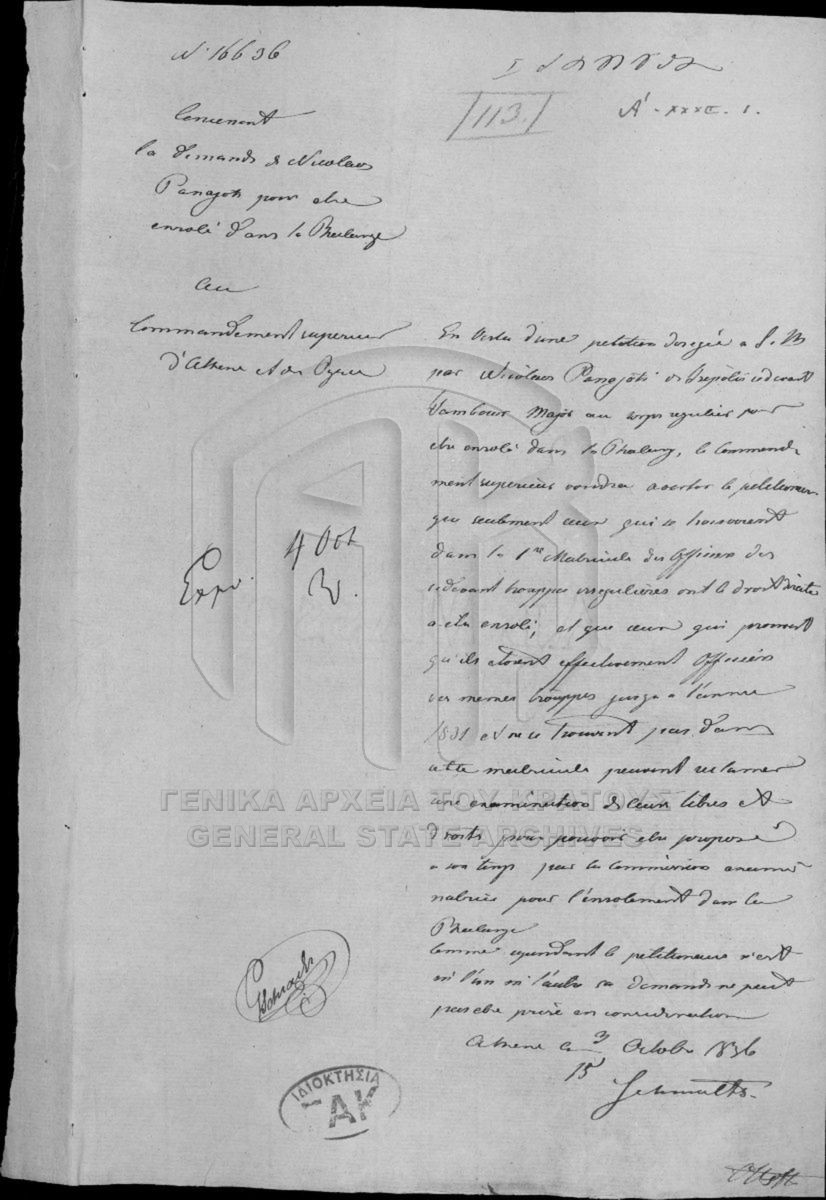 N° 16636
113.
Concernant
la demande de Nicolaos
Panajoti pour etre
enrolé dans la Phalange
Au
Commandement superieur
d'Athene et du Pyree
Exp. 4 Oct
En vertu d'une petition dirigée a S. M
par Nicolaos Panajoti de Trepolis cidevant
Tambour Major au corps regulier pour
etre enrolé dans la Phalang, le Commande
ment superieur voudra avertir le petitionaire
que seulement ceux qui se trouvent
dans la 1re Matricule des Officiers des
cidevant trouppes irregulières ont le droit
a etre enrolé, et que ceux qui prouvent
qu'ils etoient effectivement Officiers
des memes trouppes jusqu'a l'annee
1831 et ne se trouvent pas dans
cette matricule peuvent reclamer
une examination de leurs titres et
droits pour pouvoir etre proposé
a son temps par les Commissions
pour l'enrolement dans la
Phalange
Comme cependant le petitionaire n'est
ni l'un ni l'autre sa demande ne peut
pas etre prise en consideration
Athene le 3/15 Octobre 1836
Schmaltz.
ΓΕΝΙΚΑ ΑΡΧΕΙΑ ΤΟΥ ΚΡΑΤΟΥΣ
GENERAL STATE ARCHIVES
ΙΔΙΟΚΤΗΣΙΑ
ΓΑΚ